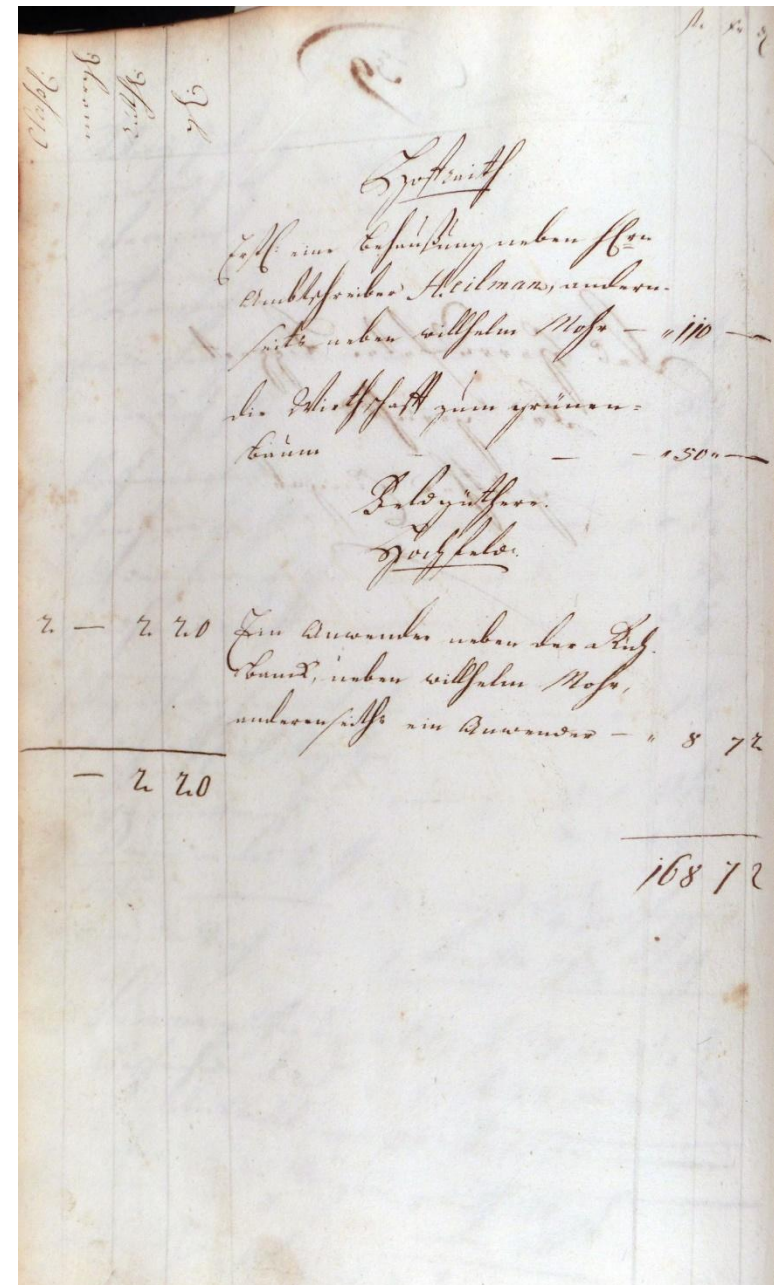 Hofraith
Erstl: eine Behaußung neben H̅rn
Ambtschreiber Heilman, andern-
seiths neben willhelm Mohr — " 110 —
die Wirthschafft zum grünen-
baum — — — " 50 " —
Feldgüthere.
Hochfeld.
2 — 2 20 Ein Anwender neben der
banck, neben willhelm Mohr,
anderenseiths ein Anwender — " 8 7 2
— 2 20
168 7 2